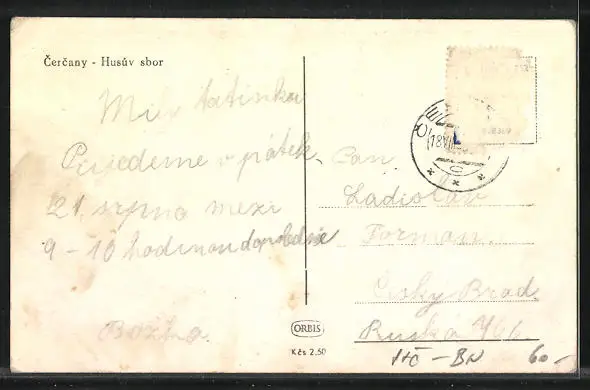 Čerčany - Husův sbor
Milý tatínku
Prijedeme v pátek
21. srpna mezi
9 - 10 hodinou dopoledne
Božka.
Pan
Ladislav
Forman.
Česky Brod.
Ruská
ORBIS
Kčs 2,50
60.-